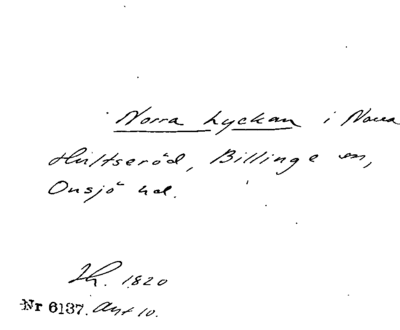 Norra Lyckan i Norra
Hultseröd, Billinge sn,
Onsjö hd.
Lh. 1820
Nr 6137. Avt 10.